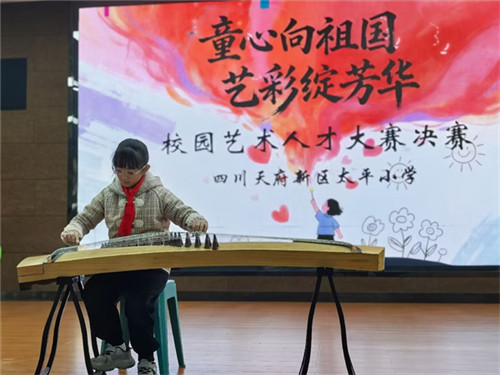 童心向祖国
艺彩绽芳华
校园艺术人才大赛决赛
四川天府新区太平小学